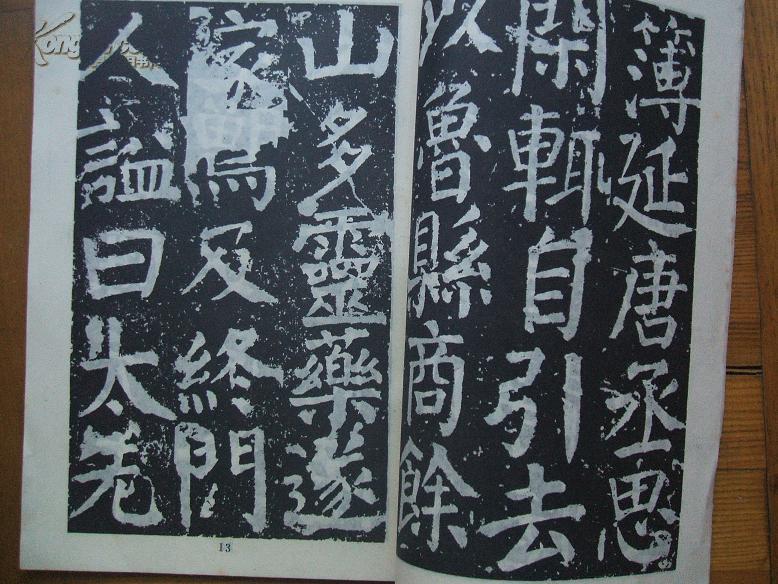 簿延唐丞思
閑輒自引去
以魯縣商餘
山多靈藥遂
家焉及終門
人謚曰太先
13